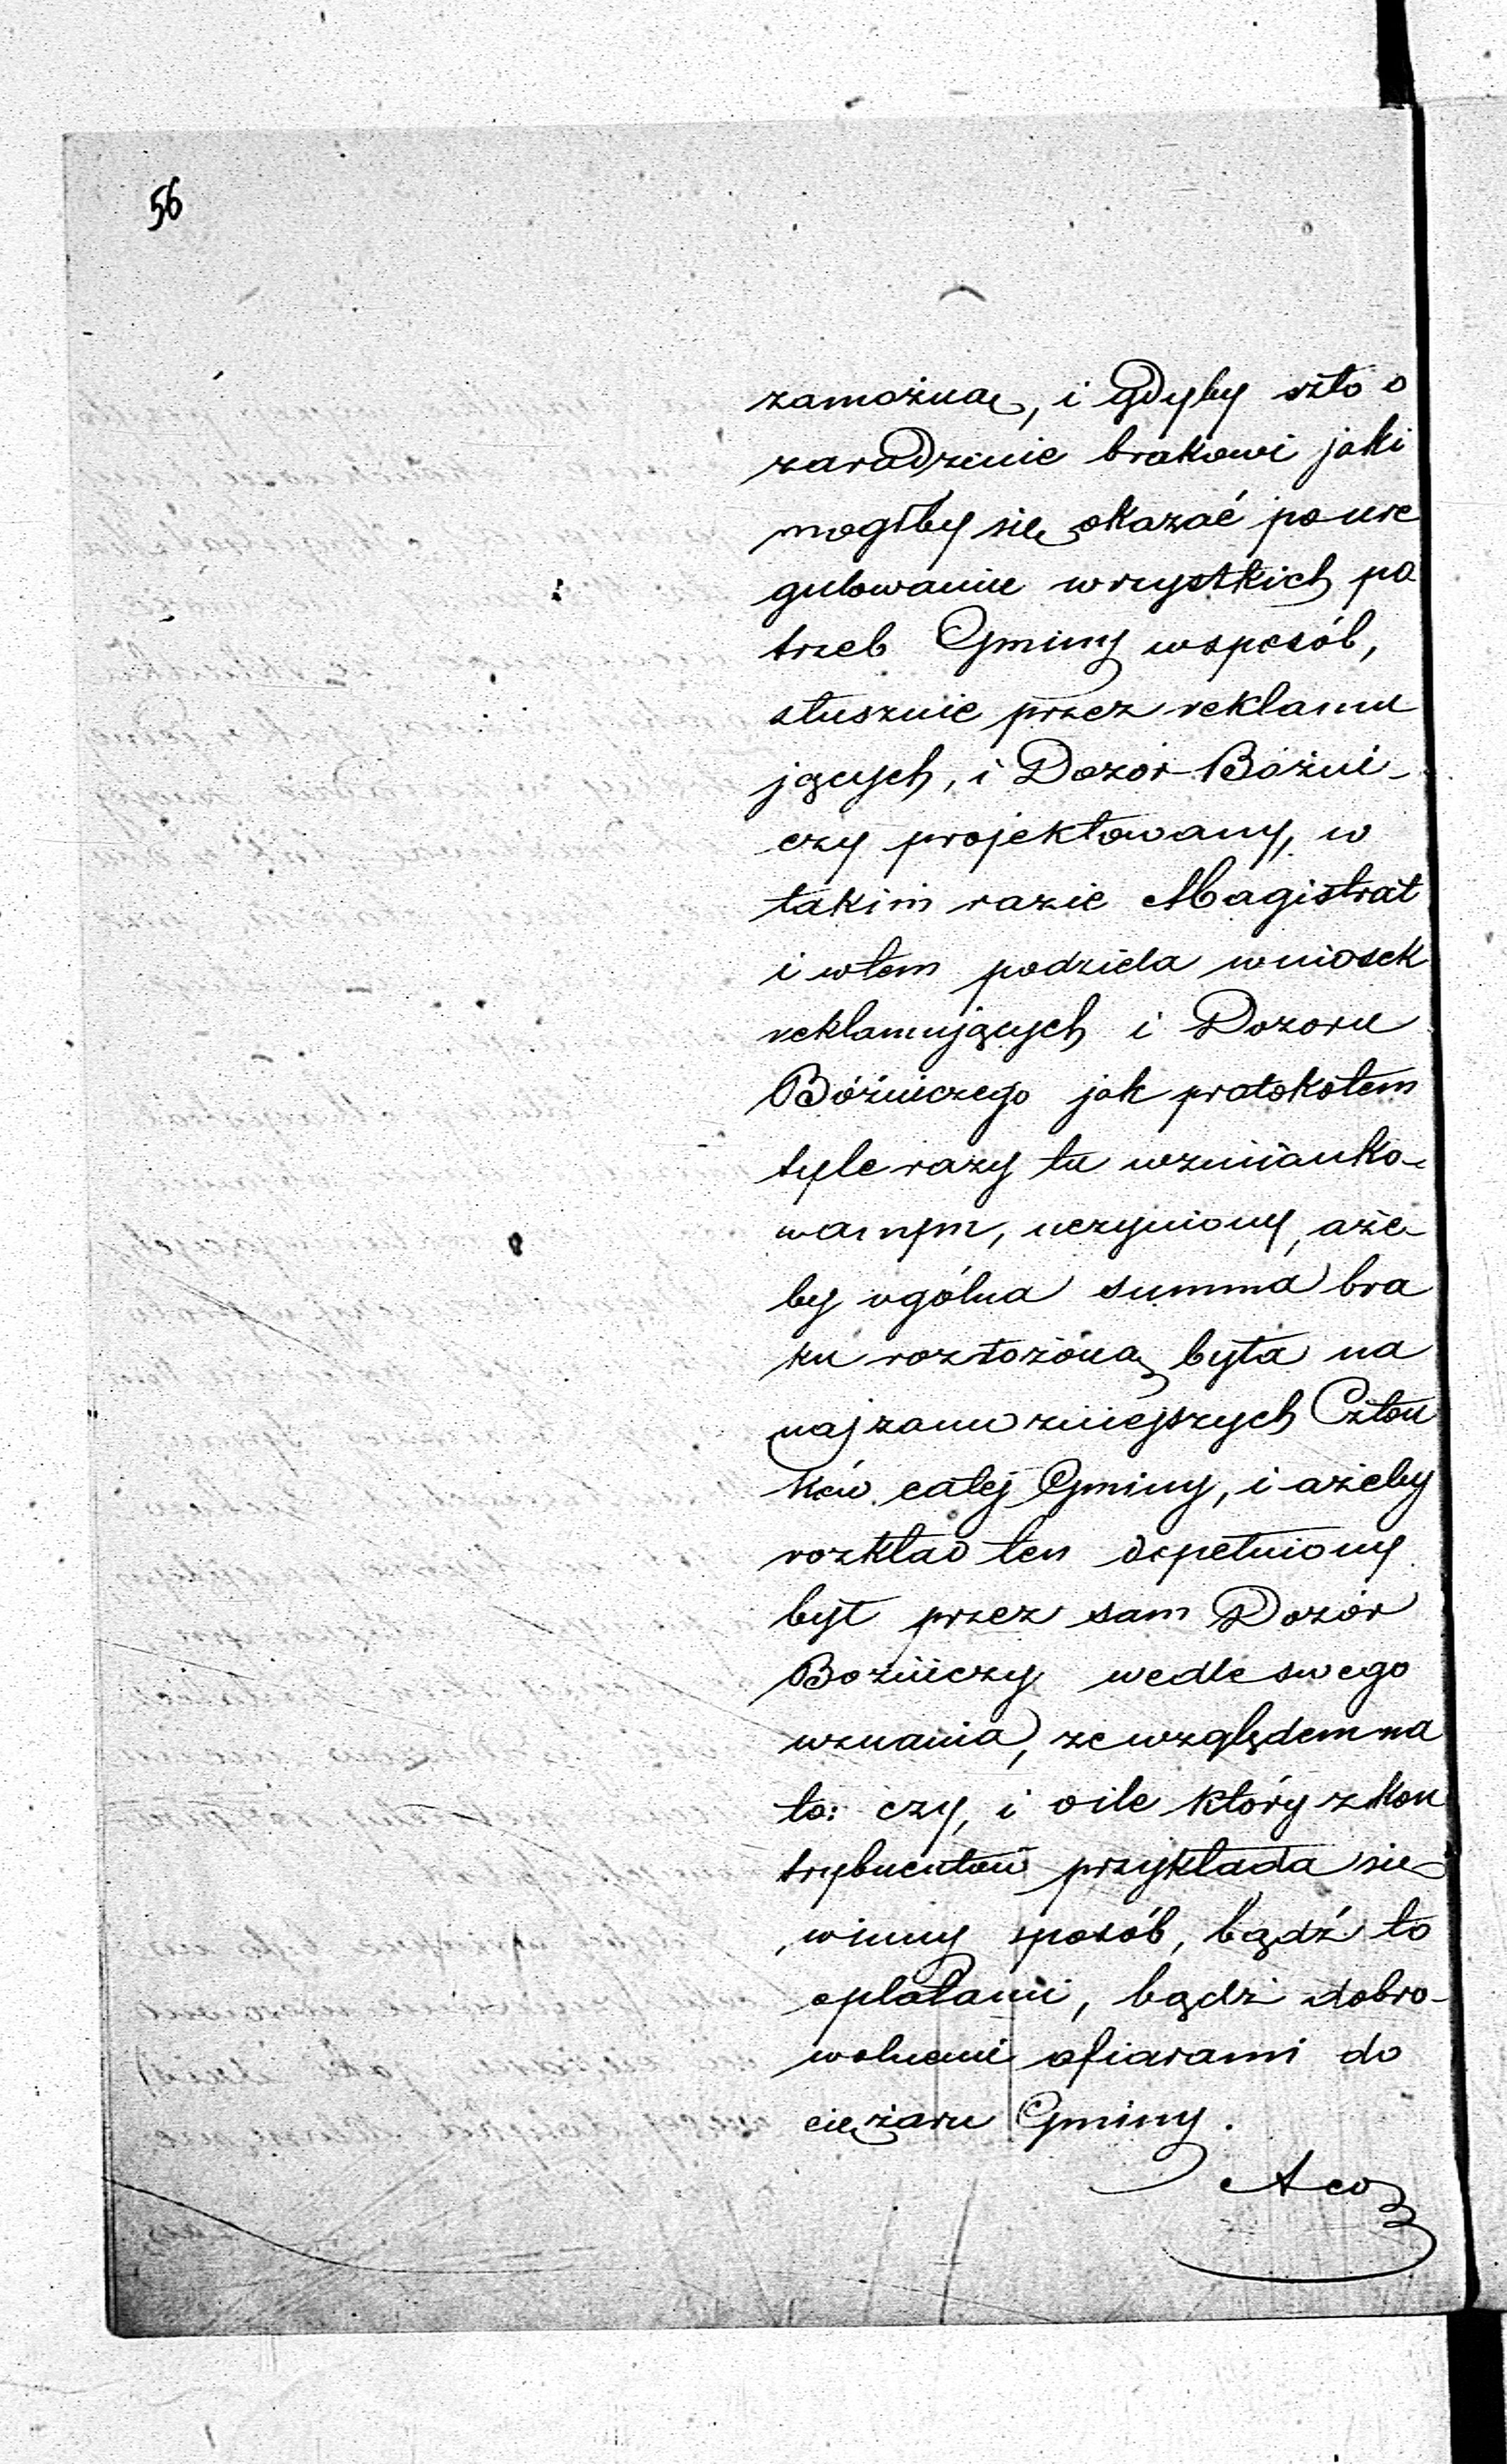 56
zamożną, i gdyby szło o
zaradzenie brakowi jaki
mogłby się okazać po ure
gulowaniu wszystkich po
trzeb Gminy wsposób,
słusznie przez reklamu
jących, i Dozór Bóżni-
czy projektowany, w
takim razie Magistrat
i wtem podziela wniosek
reklamujących i Dozoru
Bóżniczego jak protokołem
tyle razy tu wzmianko-
wanym, uczyniony, aże-
by ogólna summa bra
ku rozłożoną była na
najzamożniejszych Człon
ków całej Gminy, i ażeby
rozkład ten dopełniony
był przez sam Dozór
Bożniczy wedle swego
uznania, ze względem na
to: czy, i oile który z kon
trybuentów przykłada się
winny sposób, bądź to
opłatami, bądź dobro-
wolnemi ofiarami do
ciężaru Gminy.
A co